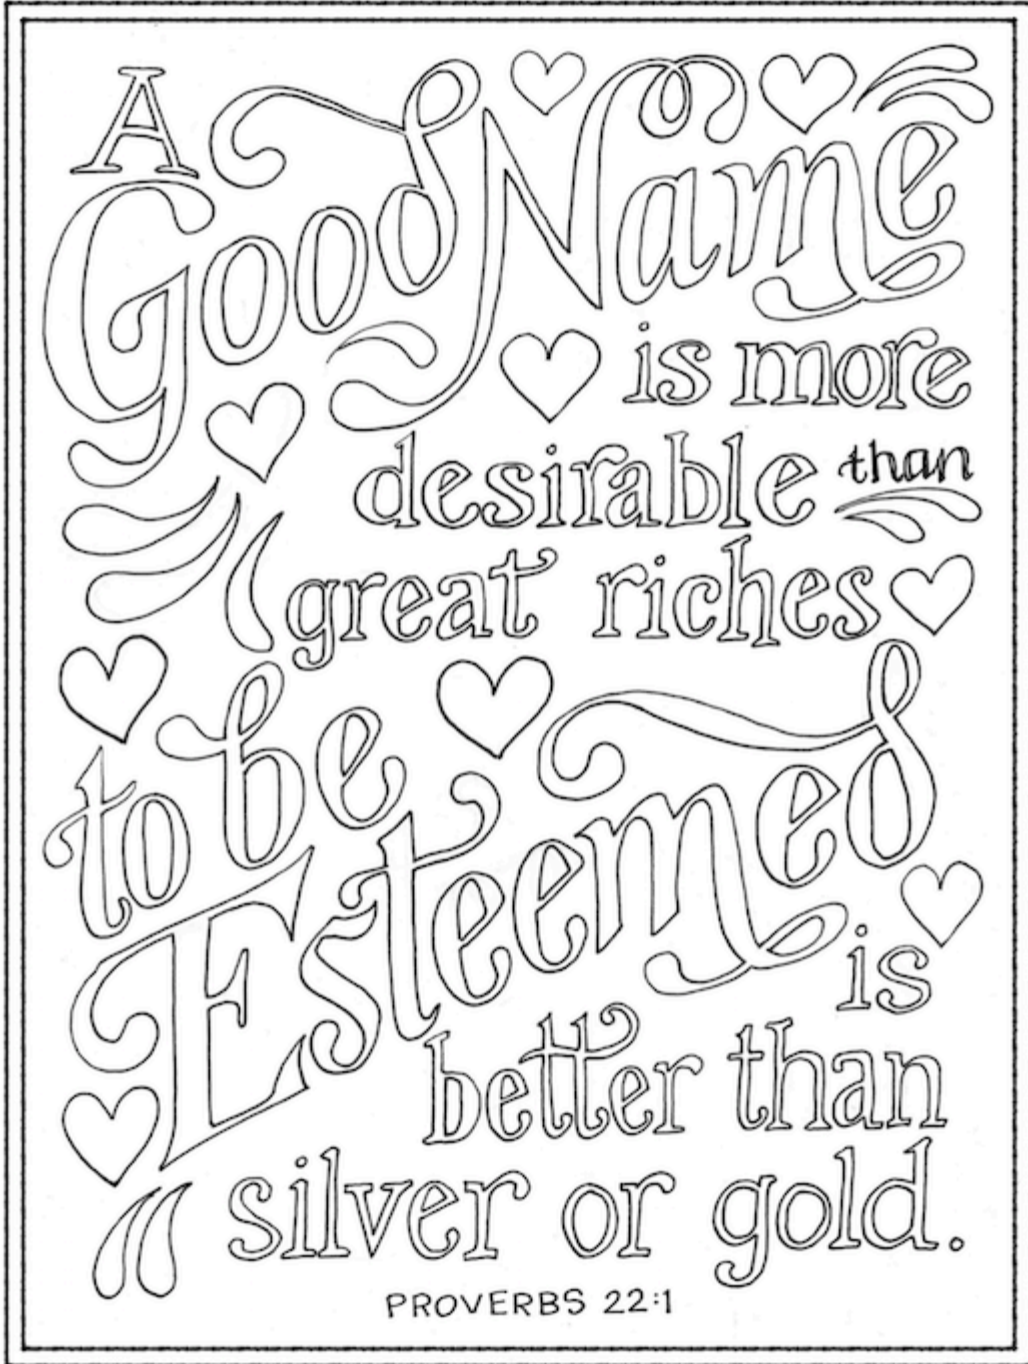 A
Good Name
is more
desirable than
great riches
to be
Esteemed
is
better than
silver or gold.
PROVERBS 22:1